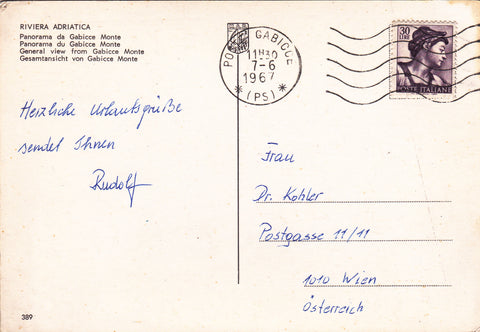 RIVIERA ADRIATICA
Panorama da Gabicce Monte
Panorama du Gabicce Monte
General view from Gabicce Monte
Gesamtansicht von Gabicce Monte
GABICCE
7-6
1967
* (PS) *
30
LIRE
POSTE ITALIANE
Herzliche Urlaubsgrüße
sendet Ihnen
Rudolf
Frau
Dr. Kohler
Postgasse 11/11
1010 Wien
Österreich
389